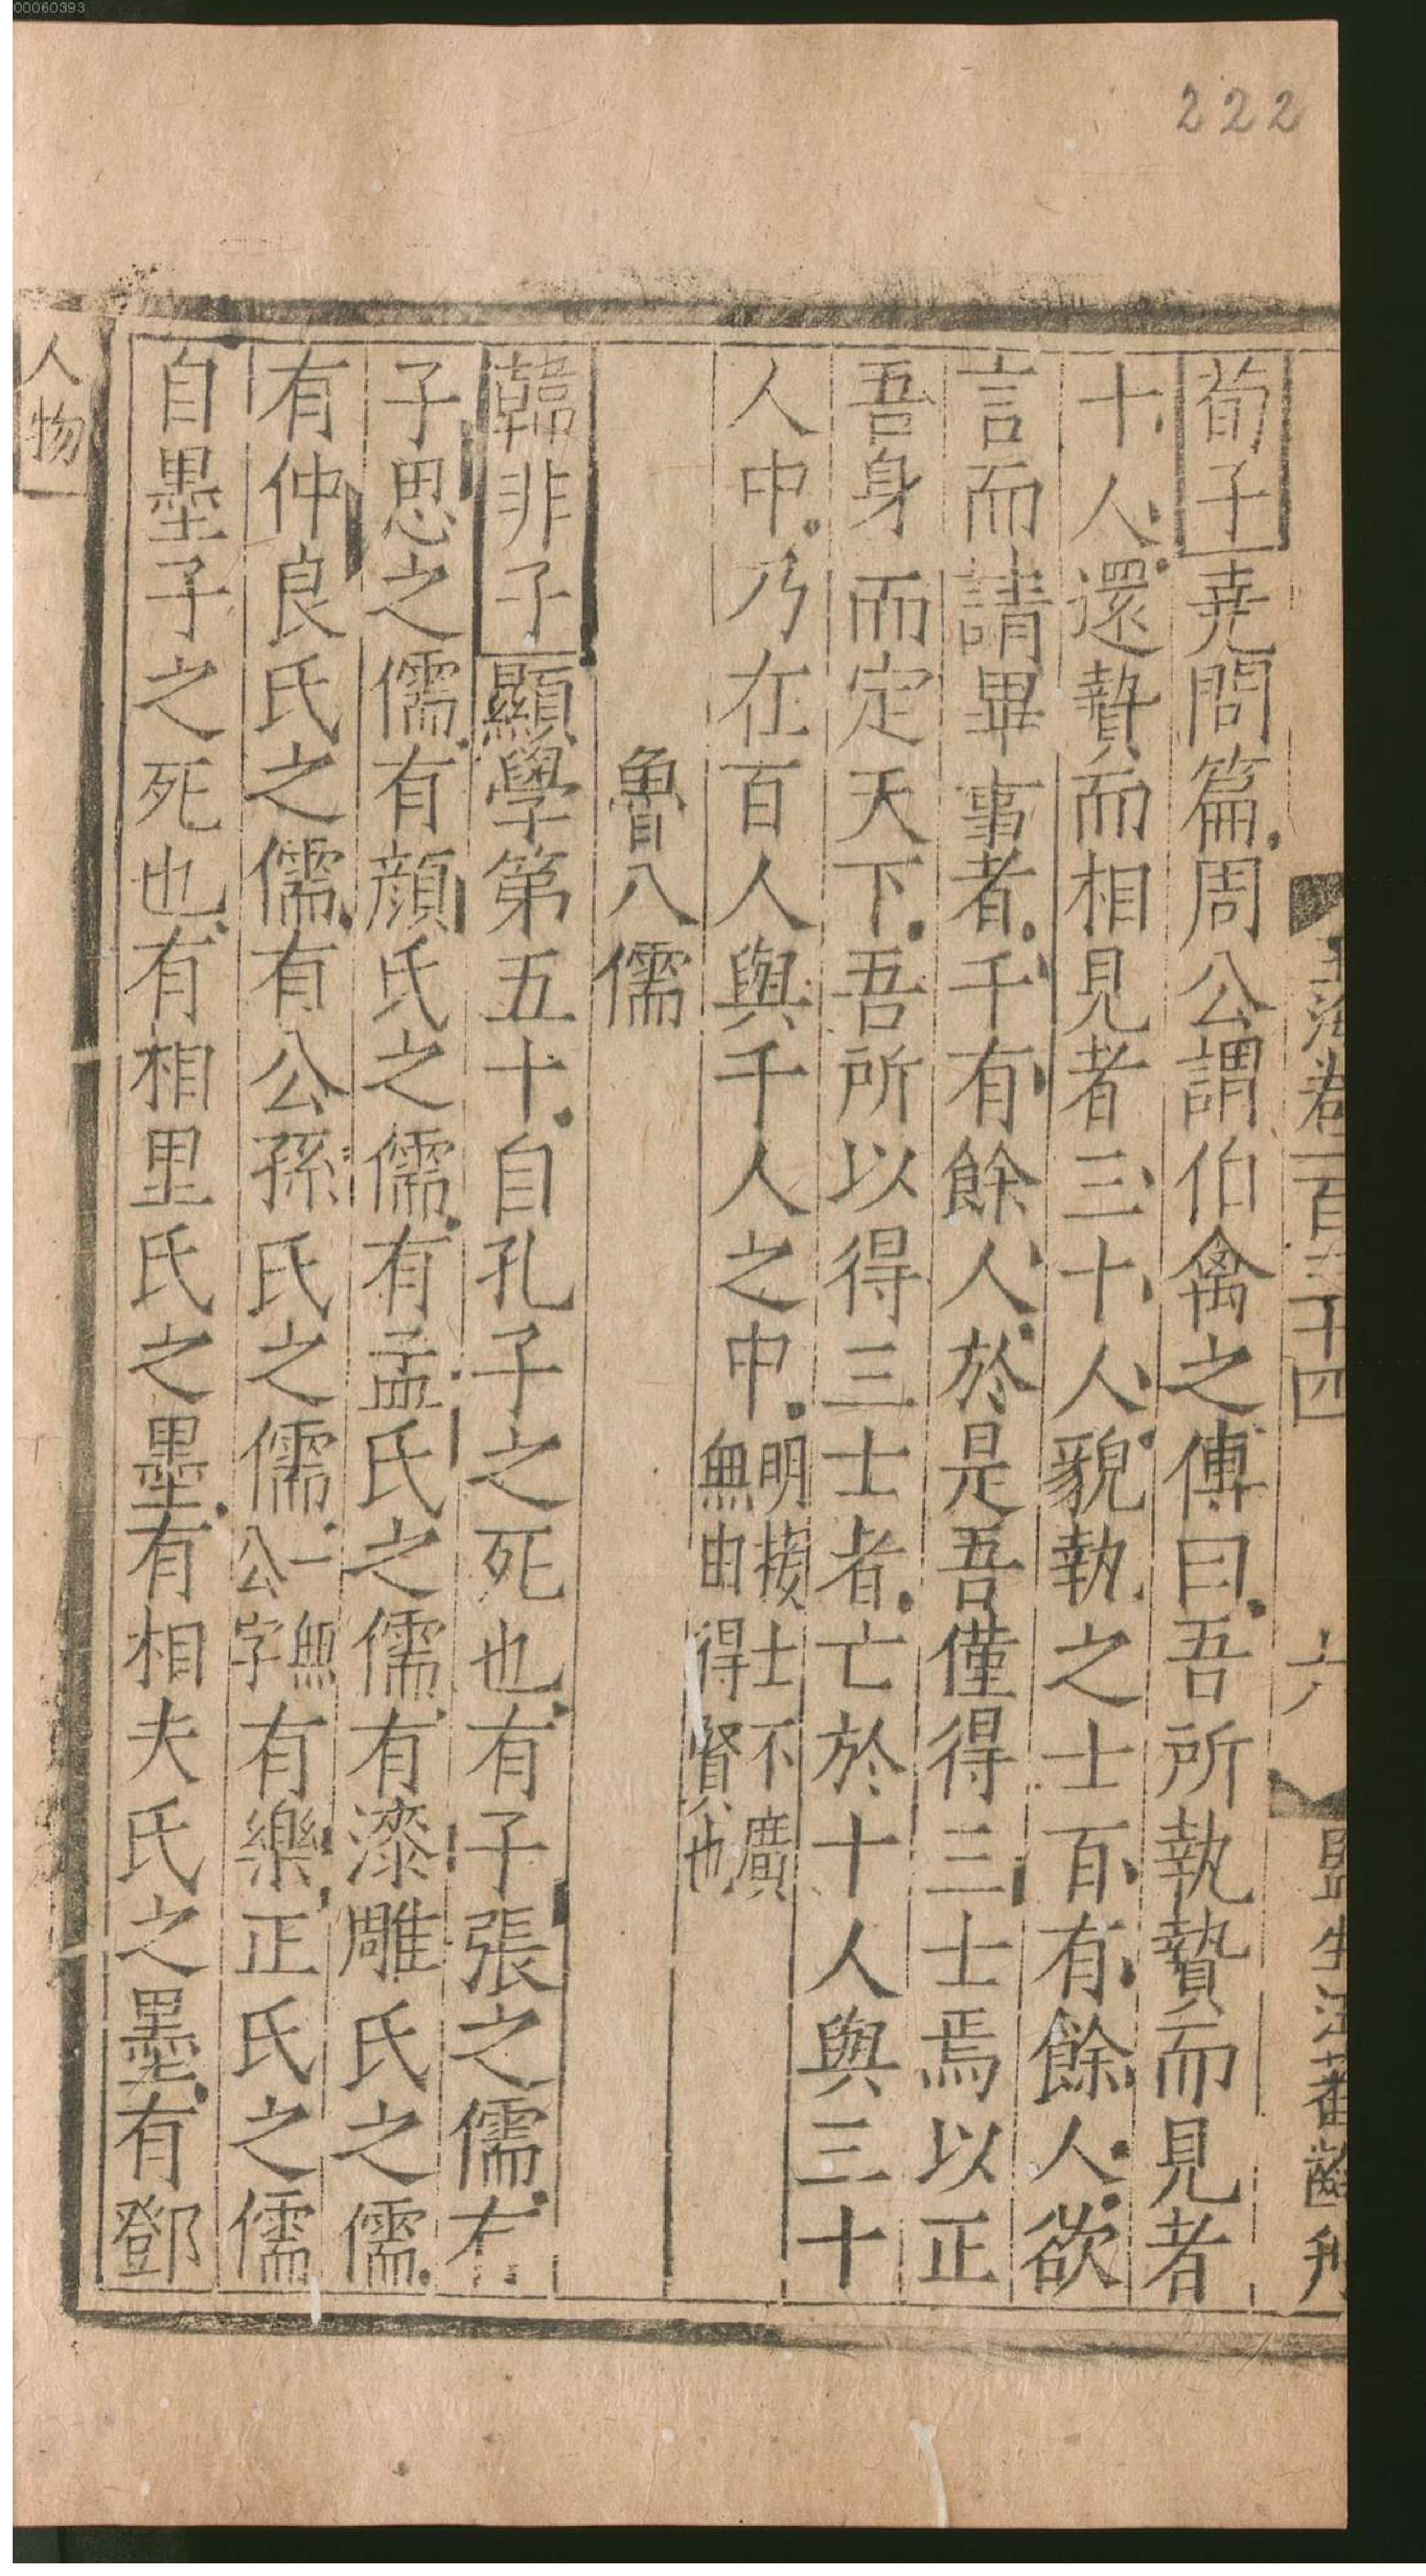 00060393
222
玉海卷一百三十四 六 監生汪蕃齡刋
荀子堯問篇周公謂伯禽之傅曰吾所執贄而見者
十人還贄而相見者三十人貌執之士百有餘人欲
言而請畢事者千有餘人於是吾僅得三士焉以正
吾身而定天下吾所以得三士者亡於十人與三十
人中乃在百人與千人之中明接士不廣無由得賢也
魯八儒
韓非子顯學第五十自孔子之死也有子張之儒有
子思之儒有顔氏之儒有孟氏之儒有漆雕氏之儒
有仲良氏之儒有公孫氏之儒一無公字有樂正氏之儒
自墨子之死也有相里氏之墨有相夫氏之墨有鄧
人物